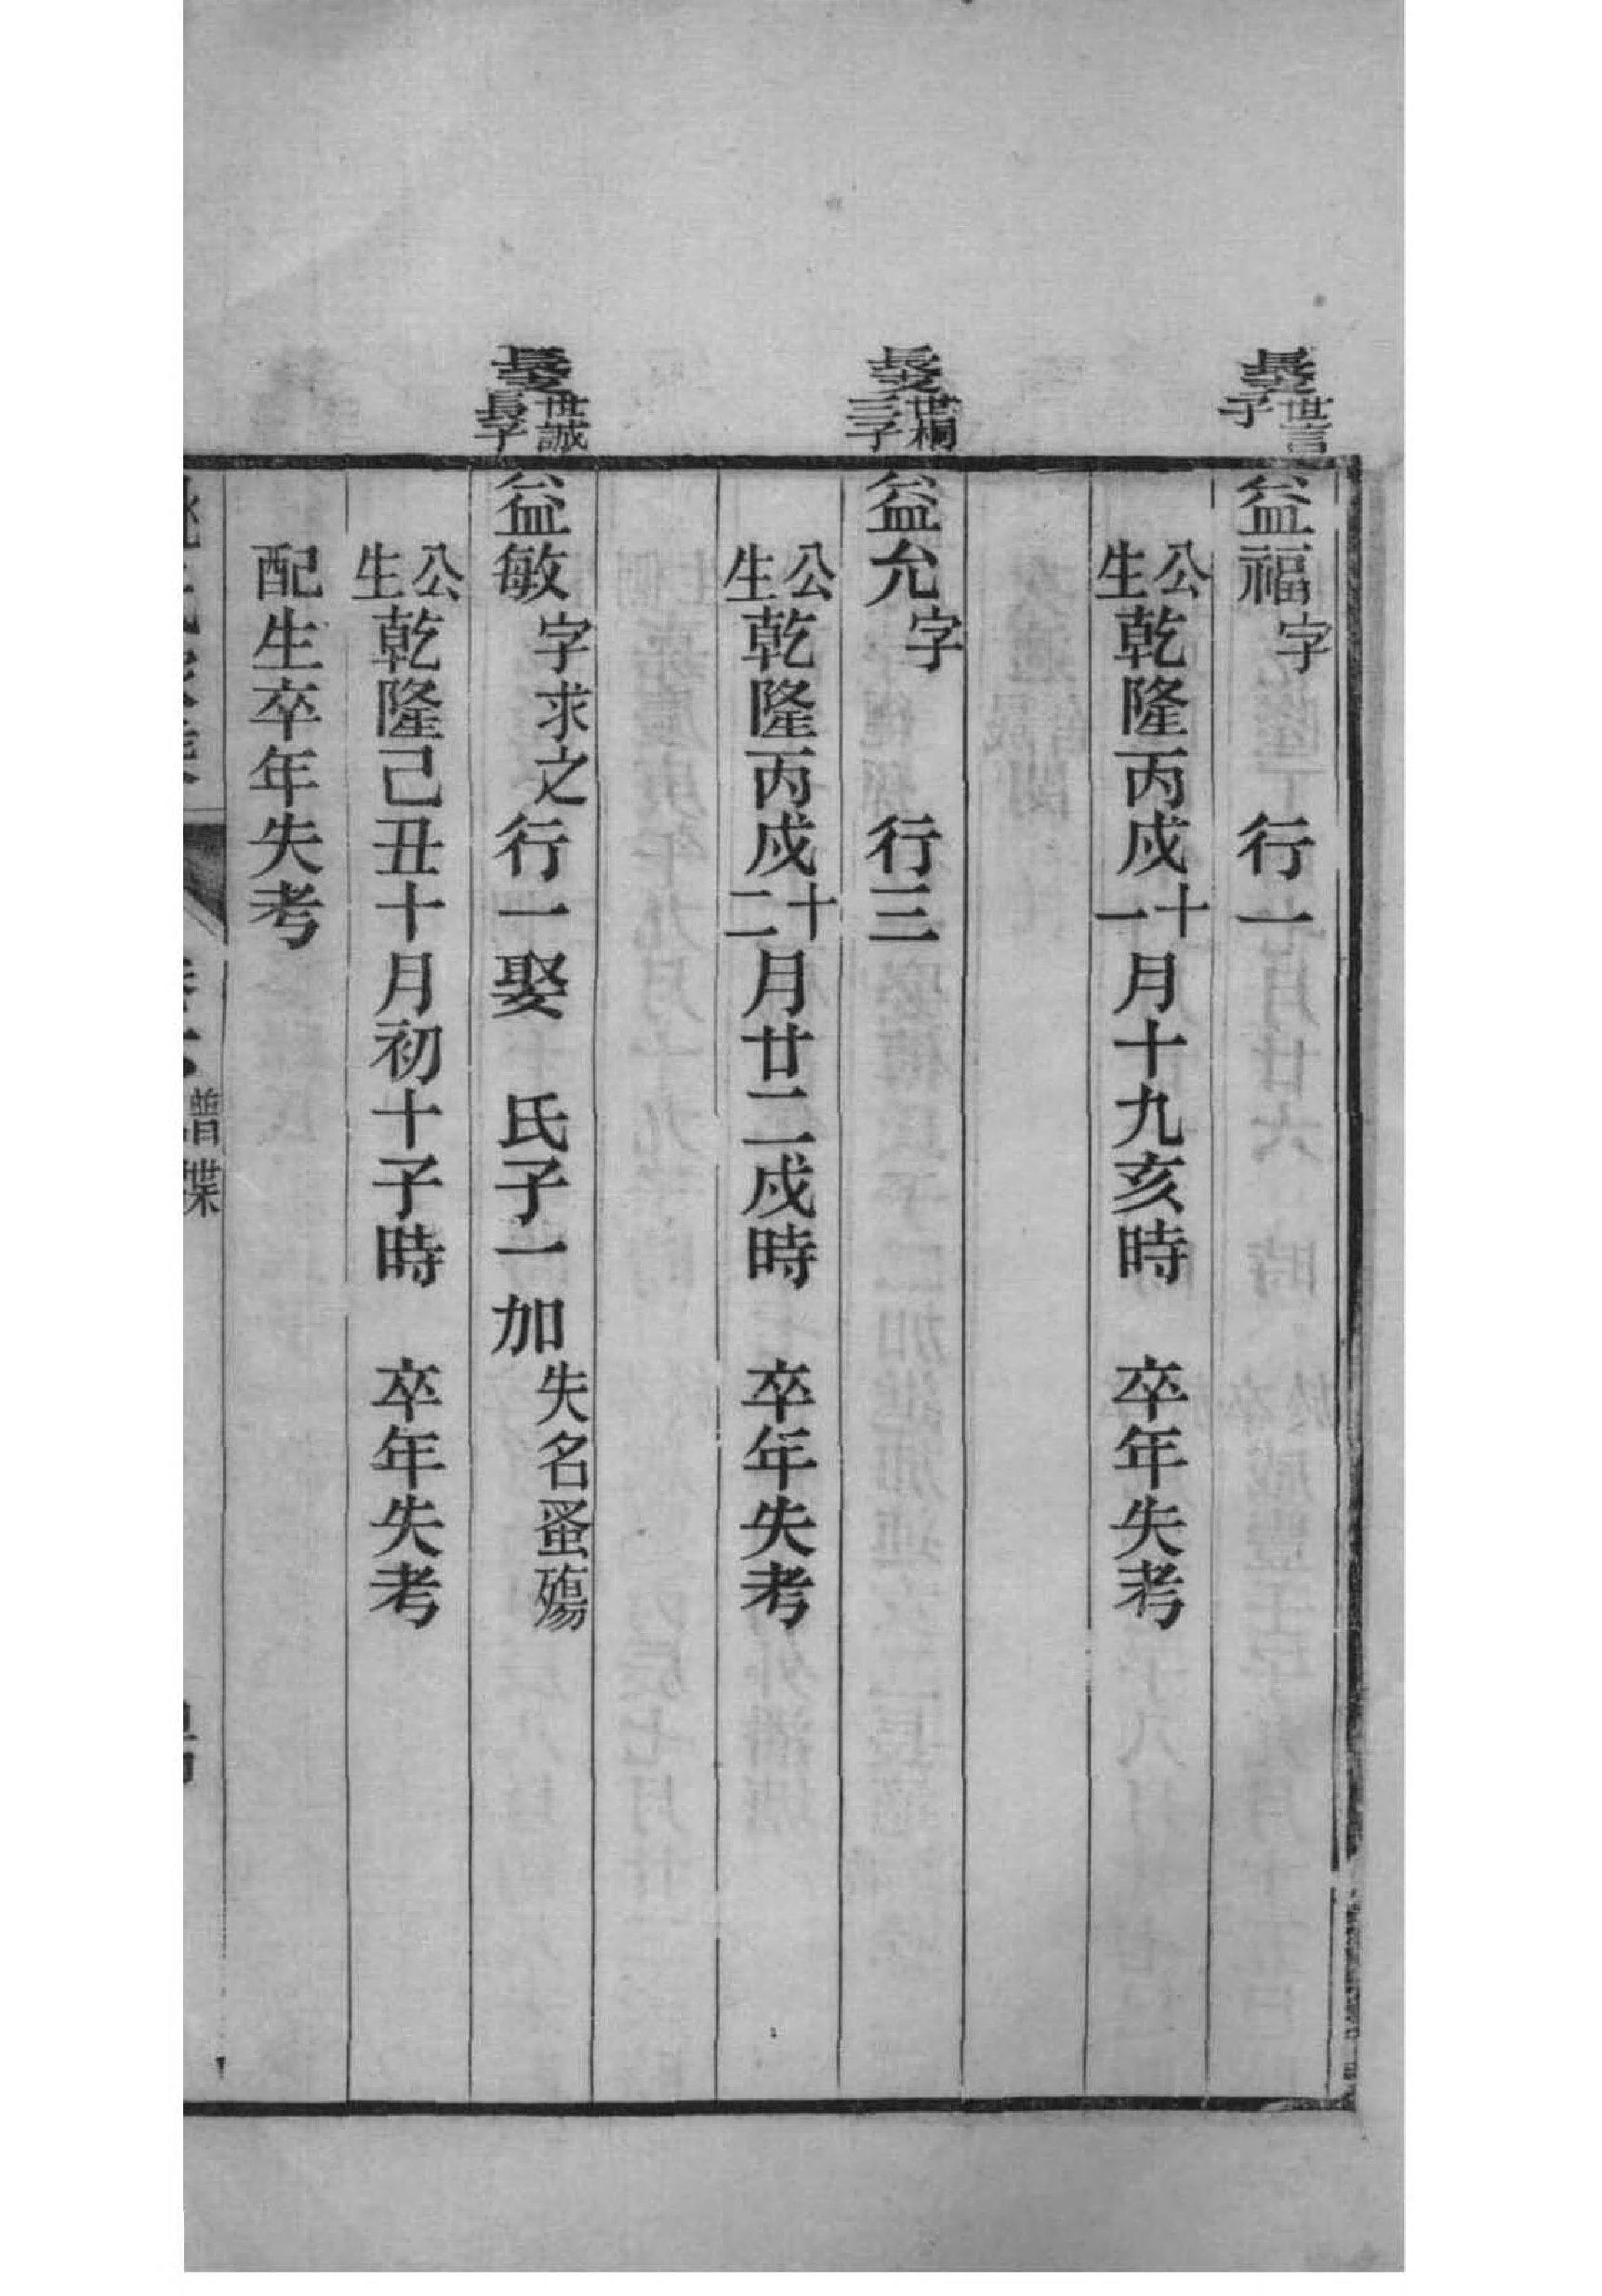 長支世言子
益福字 行一
公生乾隆丙戍十一月十九亥時 卒年失考
長支世桐三子
益允字 行三
公生乾隆丙戍十二月廿二戍時 卒年失考
長支世誠長子
益敏字求之行一娶 氏子一加失名蚤殤
公生乾隆己丑十月初十子時 卒年失考
配生卒年失考
譜牒